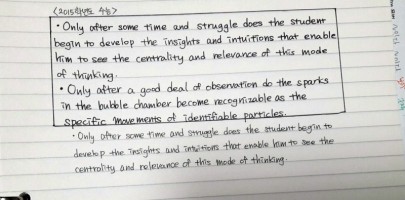 <2015학년도 수능>
• Only after some time and struggle does the student
begin to develop the insights and intuitions that enable
him to see the centrality and relevance of this mode
of thinking.
• Only after a good deal of observation do the sparks
in the bubble chamber become recognizable as the
specific movements of identifiable particles.
• Only after some time and struggle does the student begin to
develop the insights and intuitions that enable him to see the
centrality and relevance of this mode of thinking.